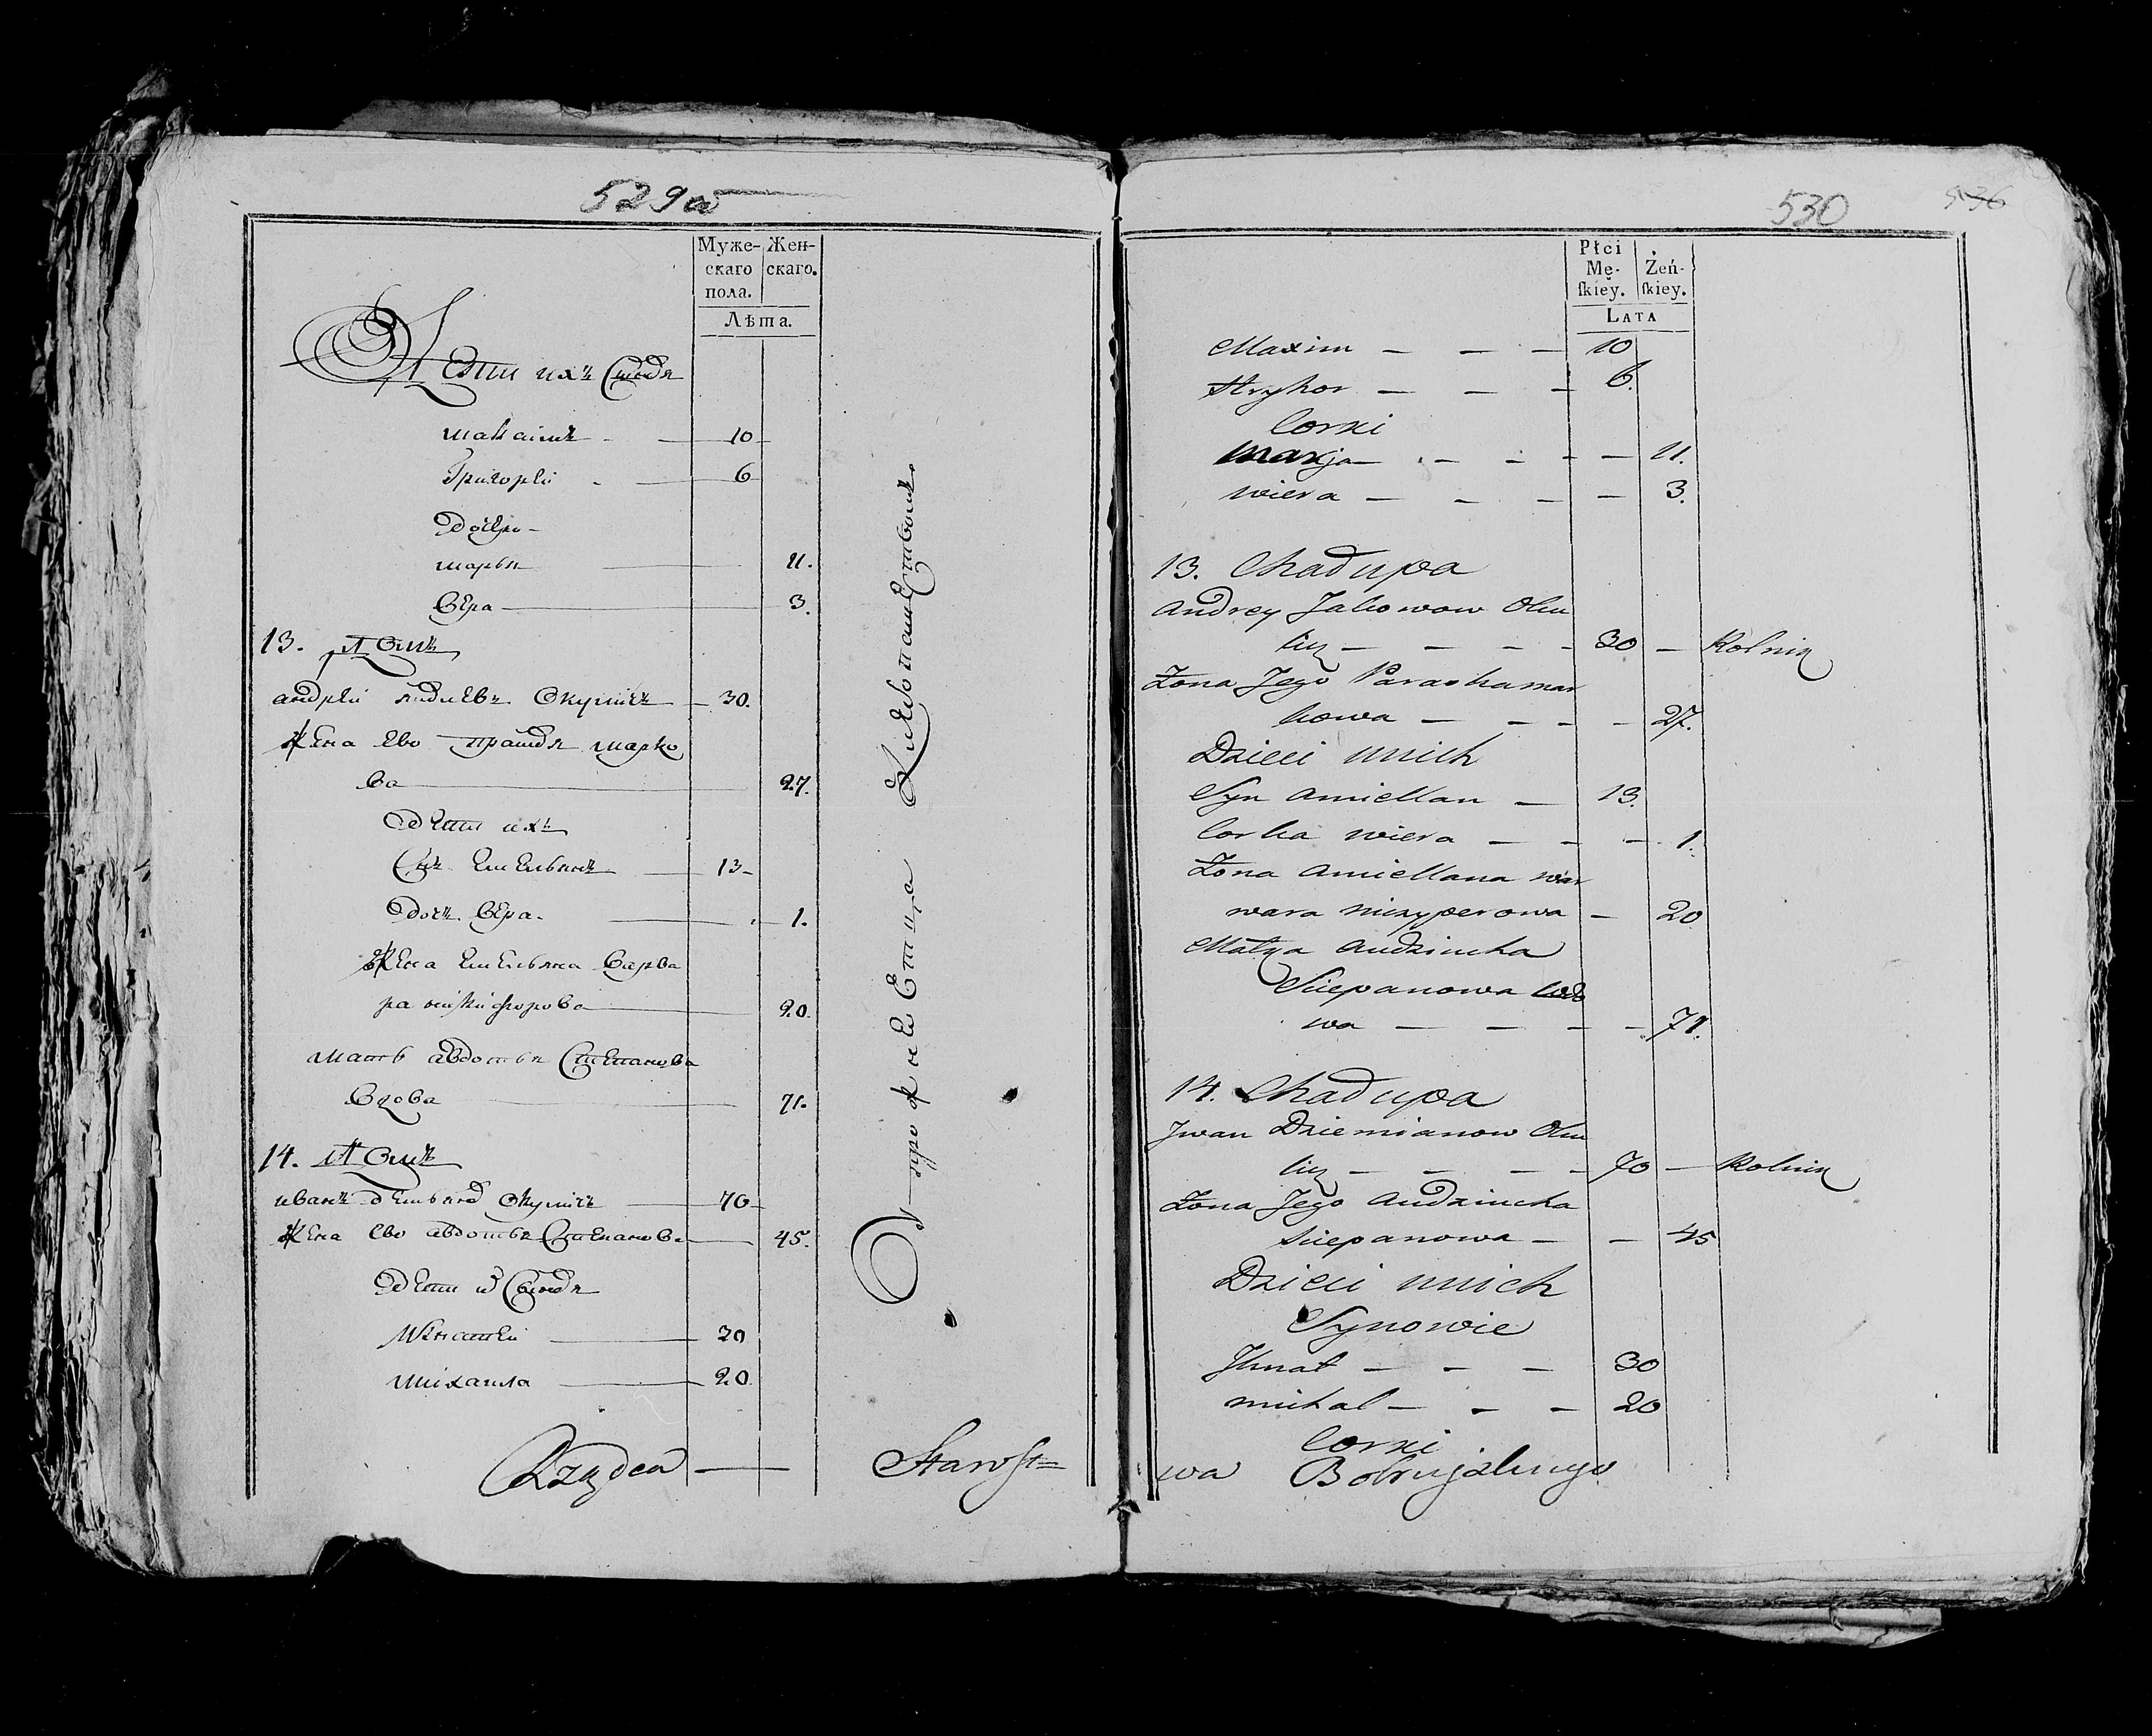 529об
Муже- Жен-
скаго скаго.
пола.
Лѣта.
Дети ихъ Сыновя
максимъ 10
Григорей 6
Дочери
марья 11.
Вера 3.
13. Домъ
андрей Окуличъ 30.
жена ево марко
ва 27.
дети ихъ
Сынъ Емельянъ 13
Дочъ Вера 1.
жена Емельяна Варва
ра никифорова 20.
мать авдотья Степанова
Вдова 71.
14. Домъ
иванъ Окуличъ 70
жена ево авдотья Степанова 45.
дети Сыновя
Игнатей 30
михаила 20.
Rządca Starost=
530
536
Płci
Mę- Żeń-
ſkiey. ſkiey.
LATA
Maxim 10
Hryhor 6.
Corki
Marja 11.
wiera 3.
13. Chałupa
Andrey Jakowow Oku
licz 30 Rolnik
Zona Jego Paraska mar
kowa 27.
Dzieci unich
Syn Amiellan 13.
Corka wiera 1.
Zona Amiellana war
wara niczyperowa 20
Matka Audziucha
Sciepanowa wdo
wa 71.
14. Chałupa
Jwan Dziemianow Oku
licz 70 Rolnik
Zona Jego Audziucha
Sciepanowa 45
Dzieci unich
Synowie
Jhnat 30
michal 20
Corki
wa Bobruyskiego